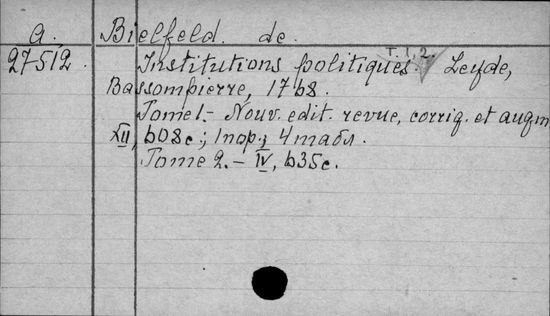 A. Bielfeld de.
27512. Institutions politiques. T. 1, 2. Leyde,
Bassompierre, 1768.
Tome 1.- Nouv. edit. revue, corrig. et augm
XII, 608c.; 1 пор.; 4 табл.
Tome 2. - IV, 635c.